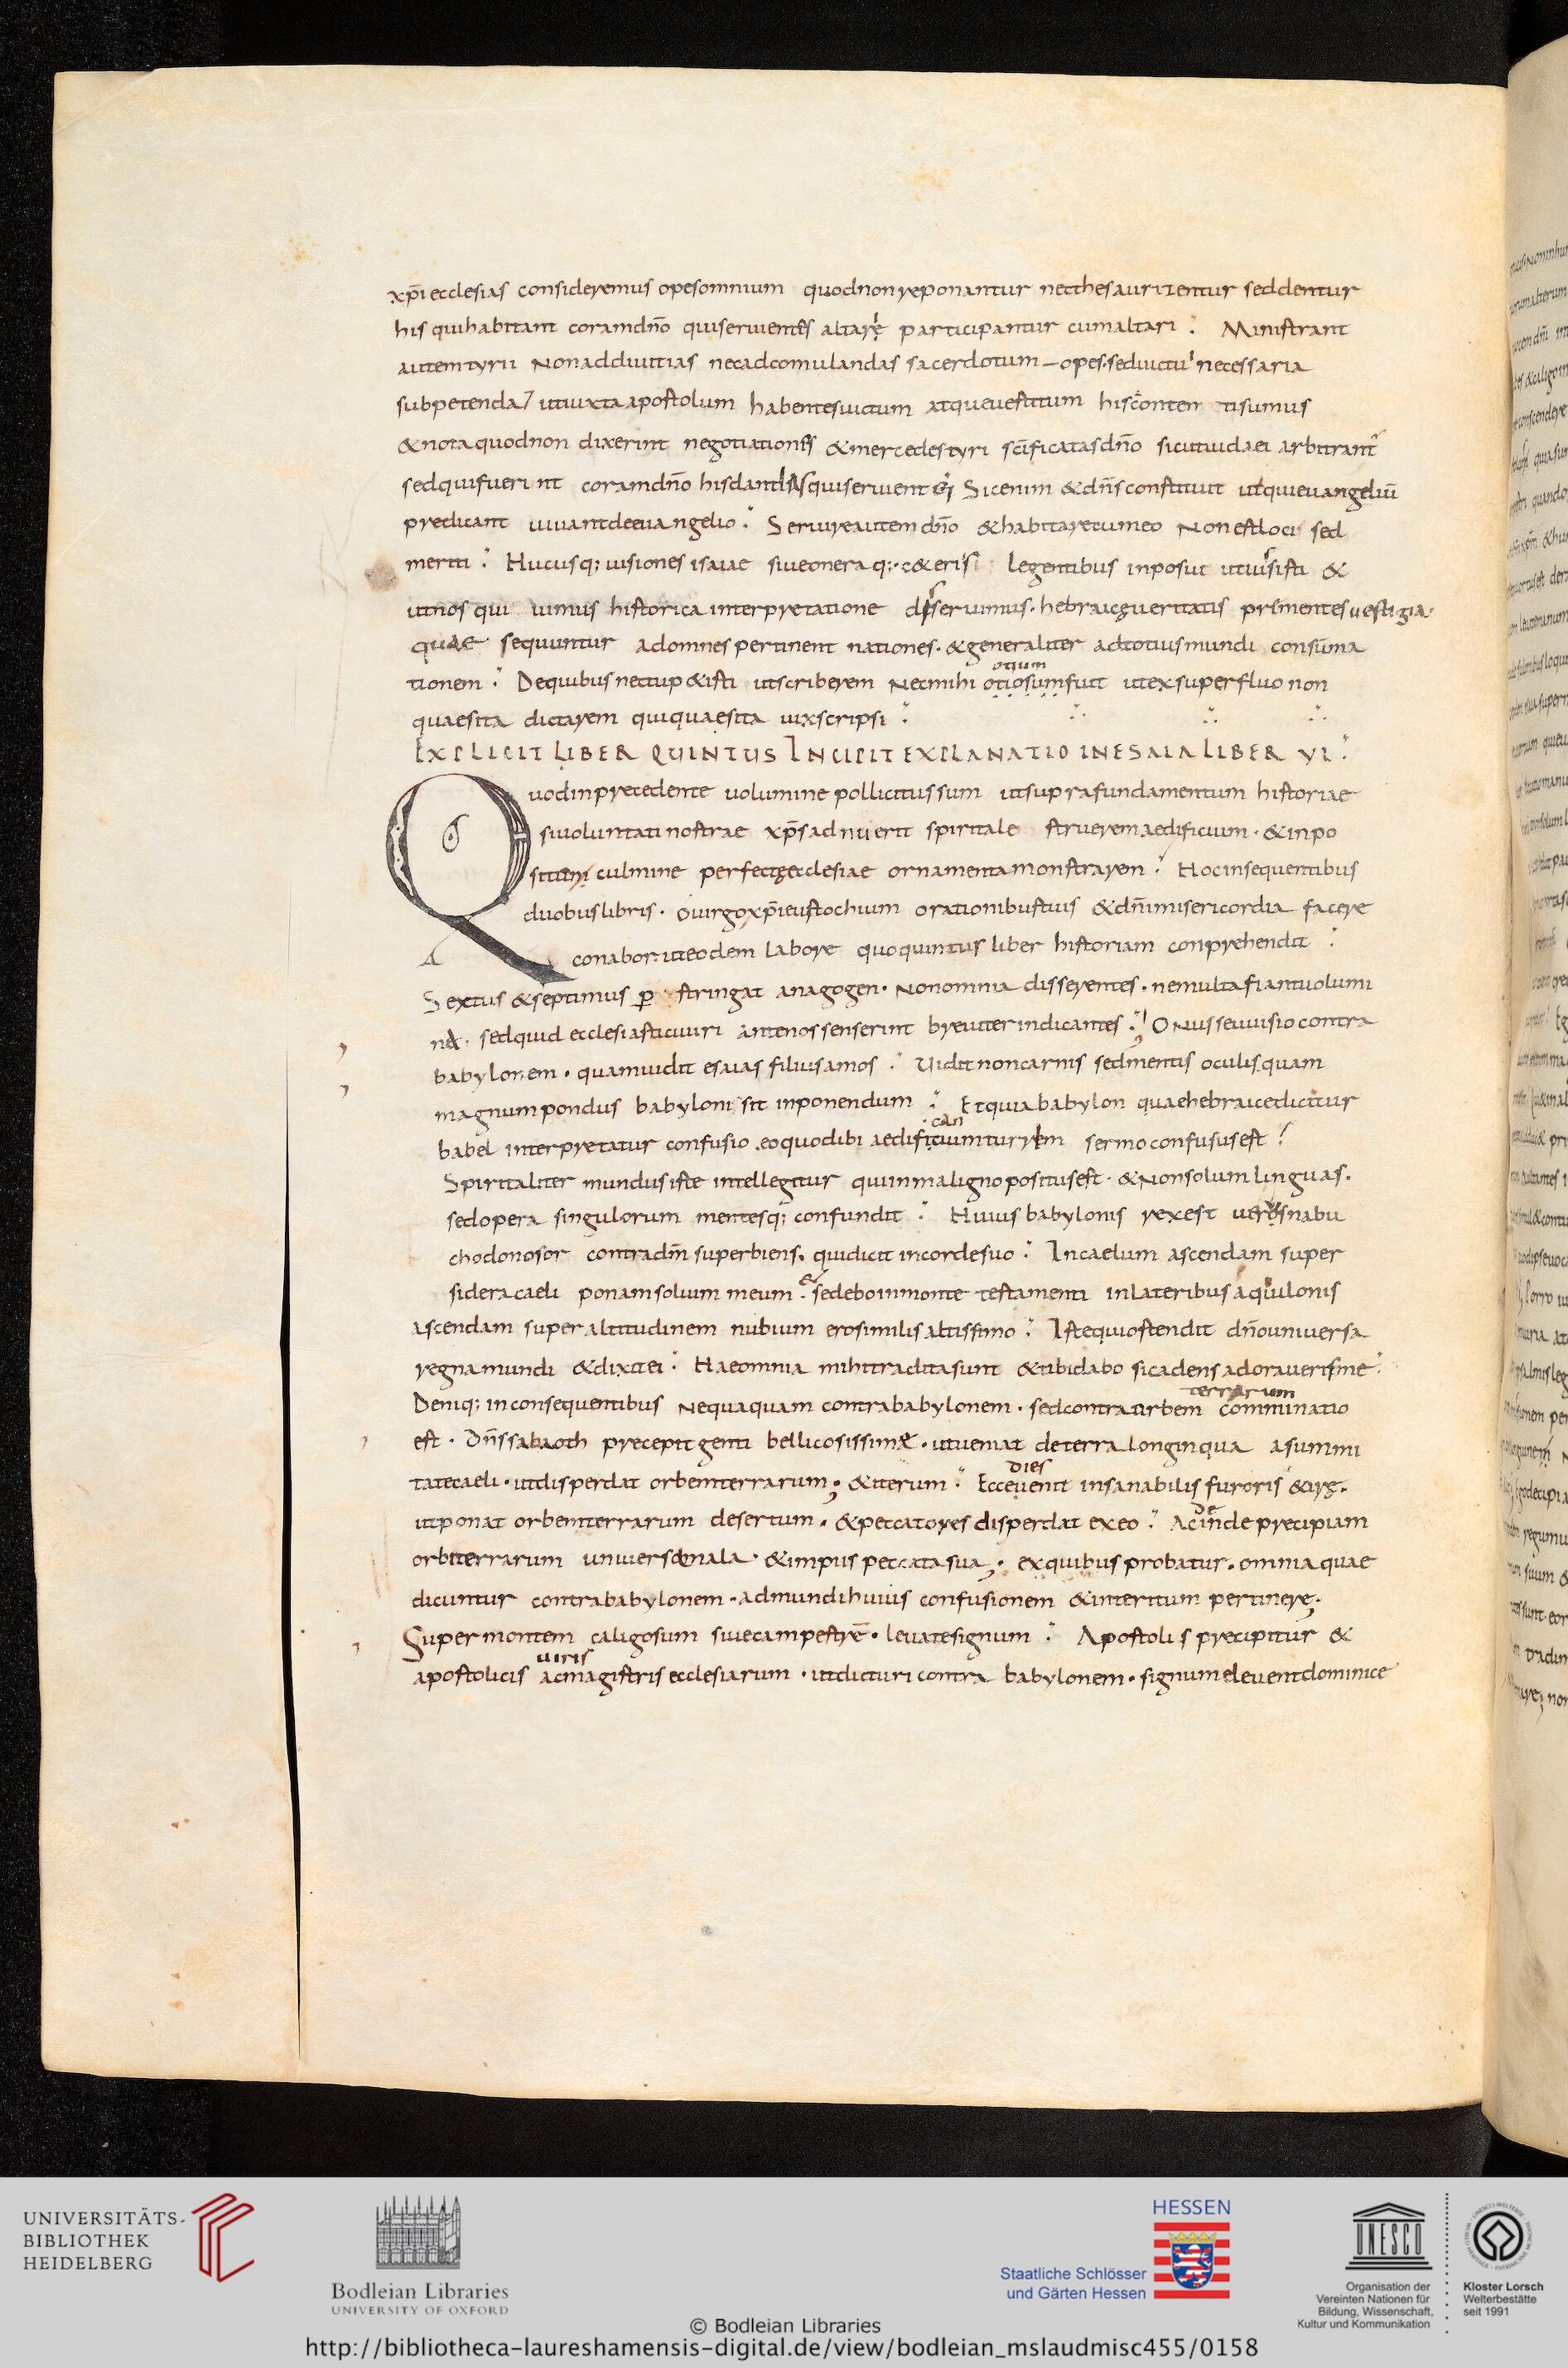 xp̄i ecclesias consideremus opes omnium quod non reponantur nec thesaurizentur sed dentur
his qui habitant coram dn̄o qui seruientes altare participantur cum altari. Ministrant
autem tyrii non ad diuitias nec ad comulandas sacerdotum opes. sed uictui necessaria
subpetenda ut iuxta apostolum habentes uictum atque uestitum his contenti sumus
& nota quod non dixerint negotiationes & mercedes tyri sc̄ificatas dn̄o sicut iudaei arbitrant̄
sed qui fuerint coram dn̄o his dandas qui seruent ei Sic enim & dn̄s constituit ut qui euangeliū
predicant uiuant de euangelio. Seruire autem dn̄o & habitare cum eo non est loci sed
meriti. Hucusq; uisiones isaiae siue onera q; c&eris legentibus inposuit ut iusisti &
ut nos qui uimus historica interpretatione disseruimus. hebraicę ueritatis prementes uestigia.
quae sequuntur ad omnes pertinent nationes. & generaliter ad totius mundi consūma
tionem. De quibus nec tu p&isti ut scriberem nec mihi otiosum fuit ut ex superfluo non
otium
quaesita dictarem qui quaesita uix scripsi.
EXPLICIT LIBER QUINTUS INCIPIT EXPLANATIO IN ESAIA LIBER VI.
Quod in precedente uolumine pollicitus sum ut supra fundamentum historiae
si uoluntati nostrae xp̄s adnuerit spiritale struerem aedificium. & inpo
situm culmine perfectę ecclesiae ornamenta monstrarem. Hoc in sequentibus
duobus libris. o uirgo xp̄i eustochium orationibus tuis & dn̄i misericordia facere
conabor. ut eodem labore quo quintus liber historiam conprehendit.
Sextus & septimus p stringat anagogen. non omnia disserentes. ne multa fiant uolumi
na. sed quid ecclesiastici uiri ante nos senserint breuiter indicantes. Onus seu uisio contra
babylonem. quam uidit esaias filius amos. Uidit non carnis sed mentis oculis quam
magnum pondus babyloni sit inponendum. Et quia babylon quae hebraice dicitur
babel interpretatur confusio. eo quod ibi aedificium turrem sermo confusus est.
can
Spiritaliter mundus iste intellegitur qui in maligno positus est. & non solum linguas.
sed opera singulorum mentesq; confundit. Huius babylonis rex est uerus nabu
chodonosor contra dn̄m superbiens. qui dicit in corde suo. In caelum ascendam super
sidera caeli ponam solium meum. & sedebo in monte testamenti in lateribus aquilonis
ascendam super altitudinem nubium ero similis altissimo. Iste qui ostendit dn̄o uniuersa
regna mundi & dixit ei. Haec omnia mihi tradita sunt & tibi dabo si cadens adoraueris me.
Deniq; in consequentibus nequaquam contra babylonem. sed contra urbem comminatio
terrarum
est. Dn̄s sabaoth precepit genti bellicosissimę. ut ueniat de terra longinqua a summi
tate caeli. ut disperdat orbem terrarum. & iterum. Ecce uenit insanabilis furoris & irę.
dies
ut ponat orbem terrarum desertum. & peccatores disperdat ex eo. Ac inde precipiam
de
orbi terrarum uniuerso mala. & impiis peccata sua. ex quibus probatur. omnia quae
dicuntur contra babylonem. ad mundi huius confusionem & interitum pertinere.
Super montem caligosum siue campestrē. leuate signum. Apostolis precipitur &
apostolicis ac magistris ecclesiarum. ut dicturi contra babylonem. signum eleuent dominice
uiris
UNIVERSITÄTS-
BIBLIOTHEK
HEIDELBERG
Bodleian Libraries
UNIVERSITY OF OXFORD
HESSEN
Staatliche Schlösser
und Gärten Hessen
UNESCO
Organisation der
Vereinten Nationen für
Bildung, Wissenschaft,
Kultur und Kommunikation
Kloster Lorsch
Welterbestätte
seit 1991
© Bodleian Libraries
http://bibliotheca-laureshamensis-digital.de/view/bodleian_mslaudmisc455/0158